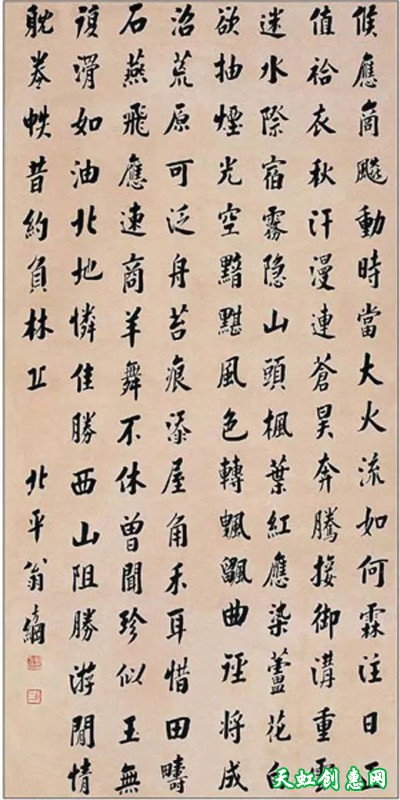 候應商飈動時當大火流如何霖注日正
值袷衣秋汗漫連蒼昊奔騰接御溝重雲
迷水際宿霧隐山頭楓葉紅應染蘆花白
欲抽煙光空黯黮風色轉飀曲逕将成
沼荒原可泛舟苔痕添屋角禾耳惜田疇
石燕飛應速商羊舞不休曾聞珍似玉無
須滑如油北地憐佳勝西山阻勝游閒情
耽卷帙昔約負林丘 北平翁方綱
天虹创惠网